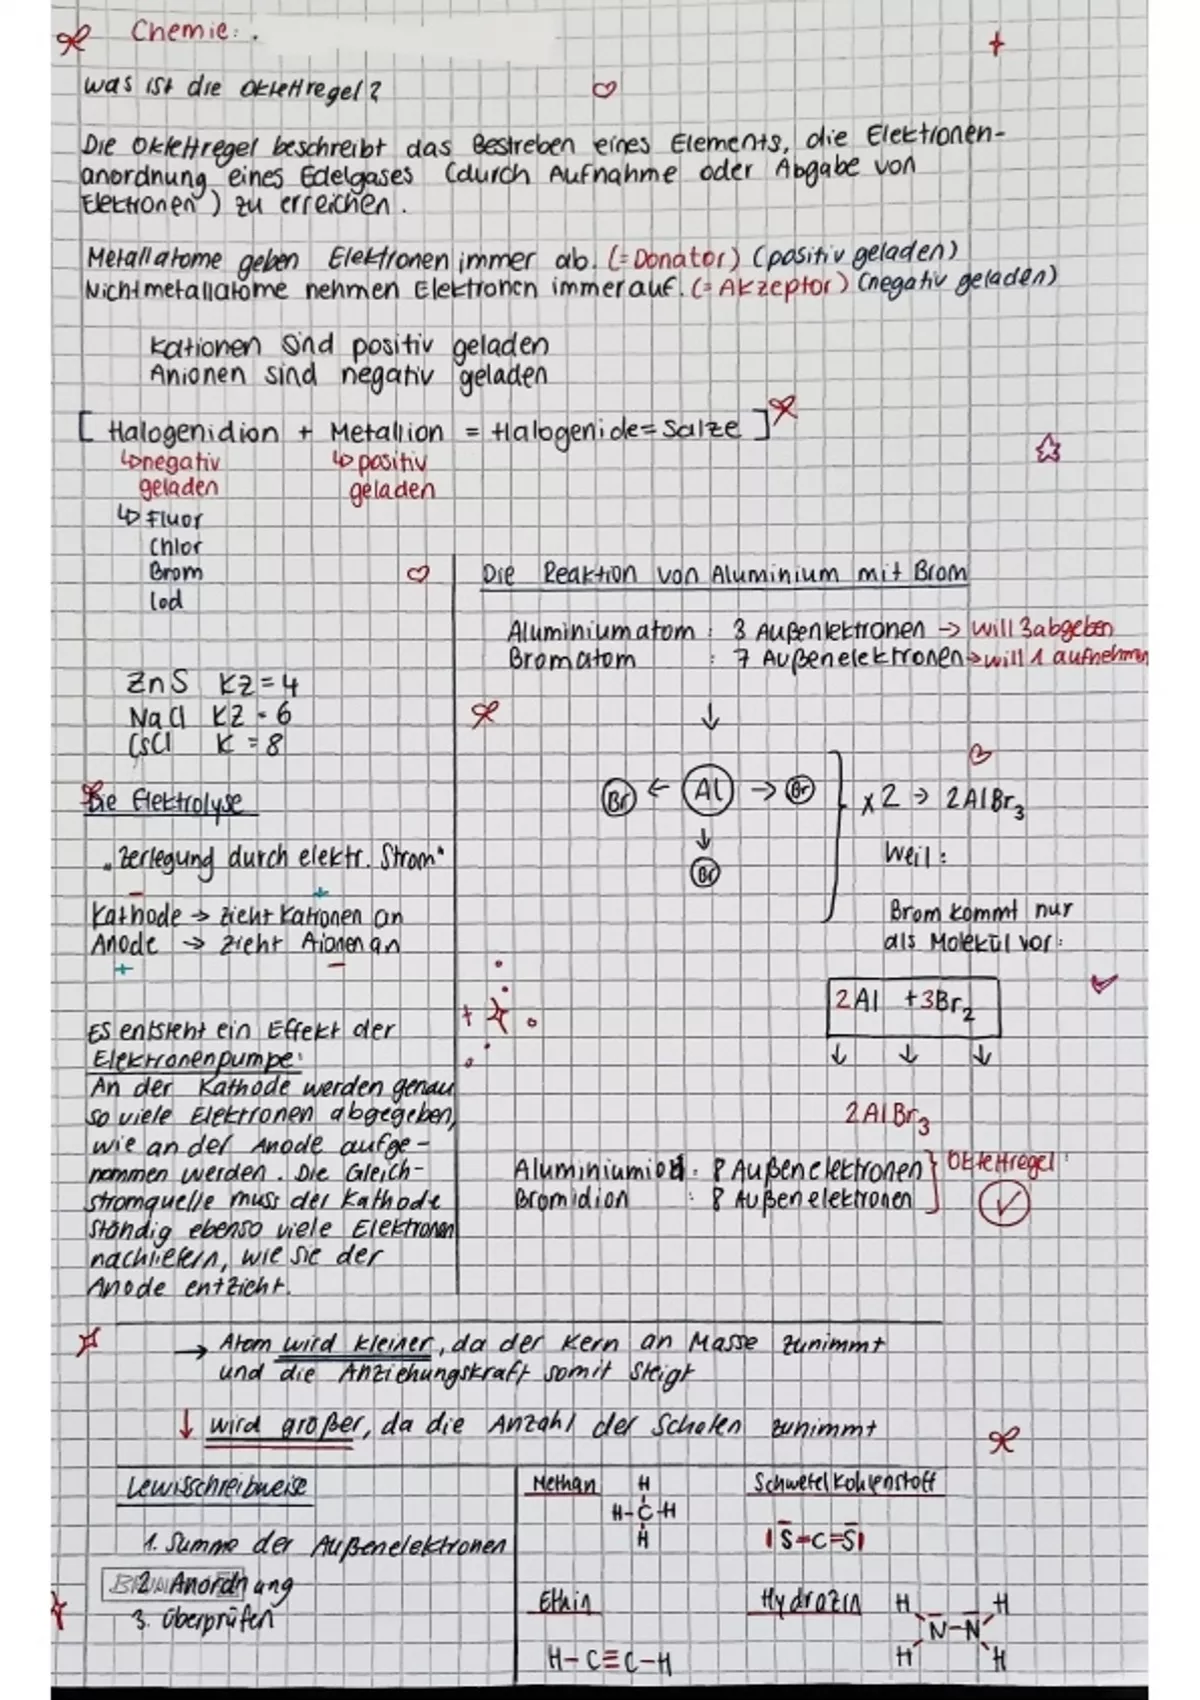 Chemie:
Was ist die Oktettregel?
Die Oktettregel beschreibt das Bestreben eines Elements, die Elektronen-
anordnung eines Edelgases (durch Aufnahme oder Abgabe von
Elektronen) zu erreichen.
Metallatome geben Elektronen immer ab. (=Donator) (positiv geladen)
Nichtmetallatome nehmen Elektronen immer auf. (=Akzeptor) (negativ geladen)
Kationen sind positiv geladen
Anionen sind negativ geladen
[Halogenidion + Metallion = Halogenide=Salze]
↳negativ
geladen
↳positiv
geladen
↳ Fluor
Chlor
Brom
Iod
ZnS KZ=4
NaCl KZ=6
CsCl K=8
Die Elektrolyse
"Zerlegung durch elektr. Strom"
- +
Kathode → zieht Kationen an
Anode → zieht Aionen an
+ -
Es entsteht ein Effekt der
Elektronenpumpe:
An der Kathode werden genau
so viele Elektronen abgegeben,
wie an der Anode aufge-
nommen werden. Die Gleich-
stromquelle muss der Kathode
ständig ebenso viele Elektronen
nachliefern, wie sie der
Anode entzieht.
Die Reaktion von Aluminium mit Brom
Aluminiumatom: 3 Außenlektronen → will 3 abgeben
Bromatom : 7 Außenelektronen → will 1 aufnehmen
↓
Br ← Al → Br
↓
Br
x2 → 2AlBr3
Weil:
Brom kommt nur
als Molekül vor:
2Al +3Br2
↓ ↓ ↓
2AlBr3
Aluminiumion: 8 Außenelektronen
Bromidion : 8 Außenelektronen
Oktettregel
→ Atom wird kleiner, da der Kern an Masse zunimmt
und die Anziehungskraft somit steigt
↓ wird großer, da die Anzahl der Schalen zunimmt
Lewisschreibweise
1. Summe der Außenelektronen
2. Anordnung
3. überprüfen
Methan
H
H-C-H
H
Schwefelkohlenstoff
|S=C=S|
Ethin
H-C≡C-H
Hydrazin
H H
N-N
H H